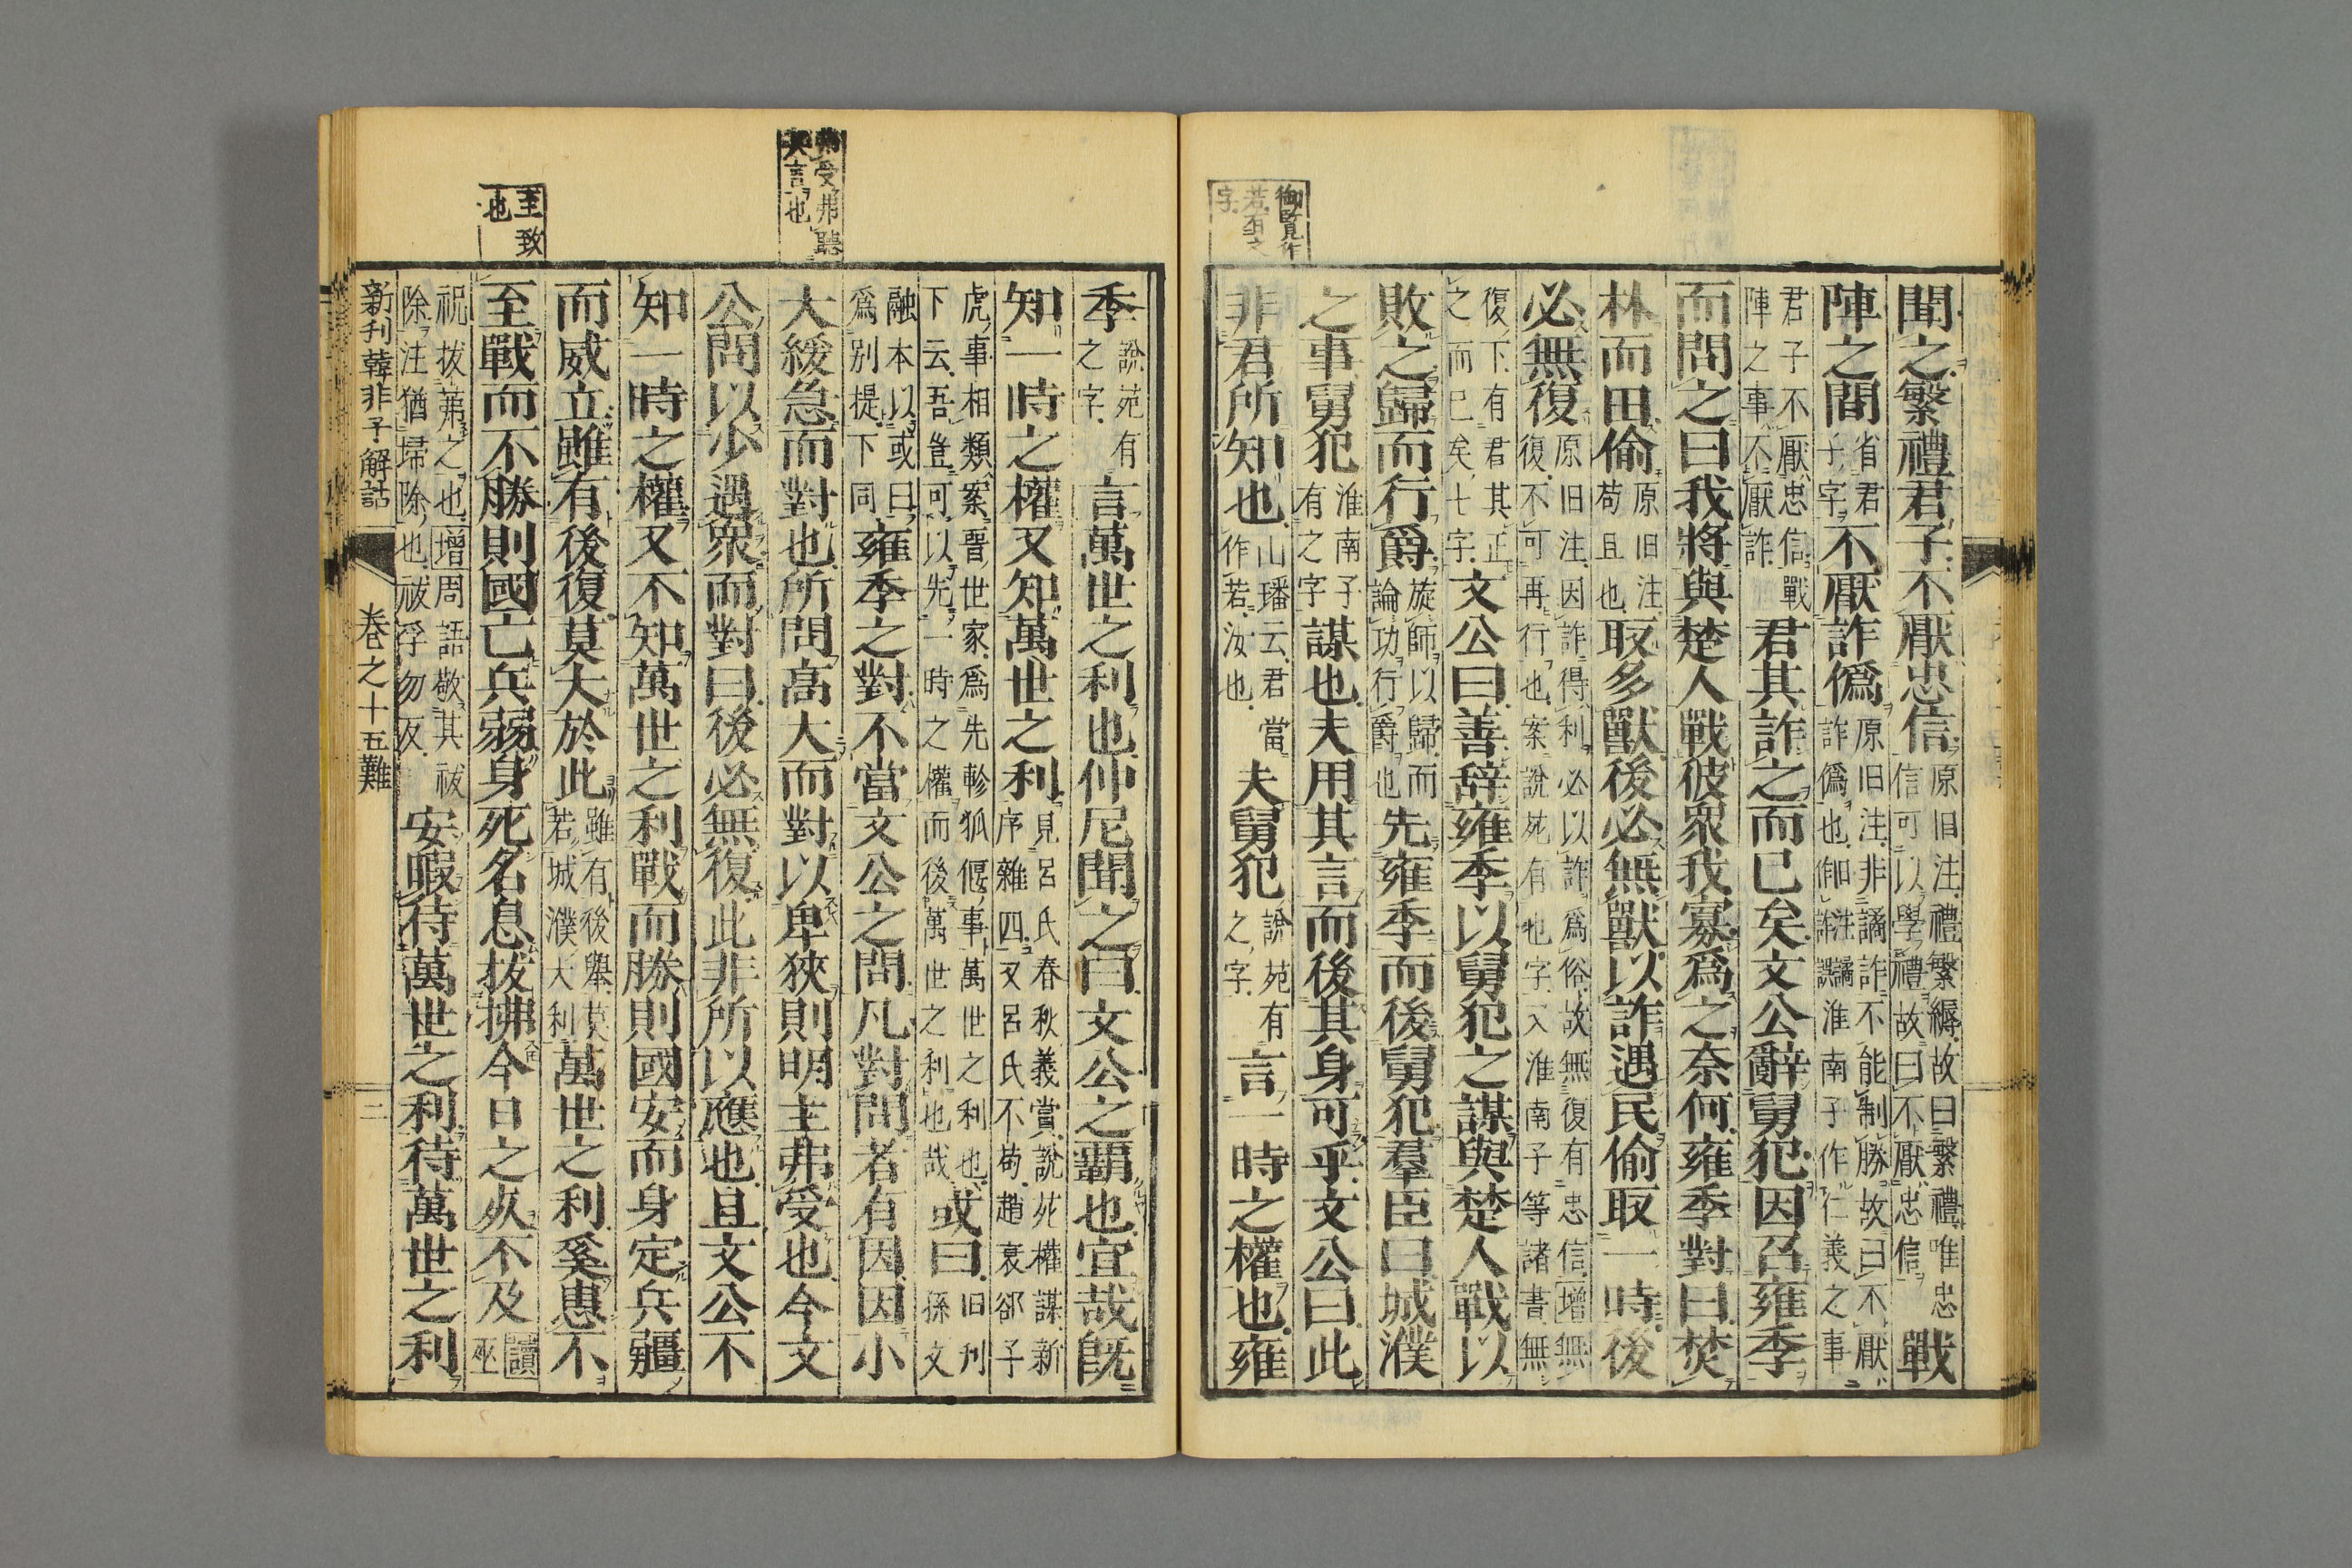 御覽作
若有之
字
聞之繁禮君子不厭忠信原旧注禮繁縟故曰繁禮唯忠信可以學禮故曰不厭忠信戰
陣之間省君子字不厭詐僞原旧注非譎詐不能制勝故曰不厭詐僞也淮南子作仁義之事
君子不厭忠信戰陣之事不厭詐君其詐之而已矣文公辭舅犯因召雍季
而問之曰我將與楚人戰彼衆我寡爲之奈何雍季對曰焚
林而田偷原旧注苟且也取多獸後必無獸以詐遇民偷取一時後
必無復原旧注因詐得利必以詐爲俗故無復有忠信增無復不可再行也案說苑有也字又淮南子等諸書無
復下有君其正之而已矣七字文公曰善辞雍季以舅犯之謀與楚人戰以
敗之歸而行爵旋師以歸而論功行爵也先雍季而後舅犯羣臣曰城濮
之事舅犯淮南子有之字謀也夫用其言而後其身可乎文公曰此
非君所知也山璠云君當作若汝也夫舅犯說苑有之字言一時之權也雍
弗受弗聽
其言也
至致
也
季說苑有之字言萬世之利也仲尼聞之曰文公之霸也宜哉既
知一時之權又知萬世之利見呂氏春秋義賞說苑權謀新序雜四又呂氏不苟趙衰郤子
虎事相類案晋世家爲先軫狐偃事萬世之利也旧刋下云吾豈可以先一時之權而後萬世之利也哉或曰孫文
融本以或曰爲別提下同雍季之對不當文公之問凡對問者有因因小
大緩急而對也所問高大而對以卑狹則明主弗受也今文
公問以少遇衆而對曰後必無復此非所以應也且文公不
知一時之權又不知萬世之利戰而勝則國安而身定兵疆
而威立雖有後復莫大於此雖有後舉莫若城濮大利萬世之利奚患不
至戰而不勝則國亡兵弱身死名息拔拂今日之死不及讀巫
祝拔茀之也增周語敬其祓除注猶掃除也祓孚勿反安暇待萬世之利待萬世之利
新刋韓非子解詁 卷之十五難 二